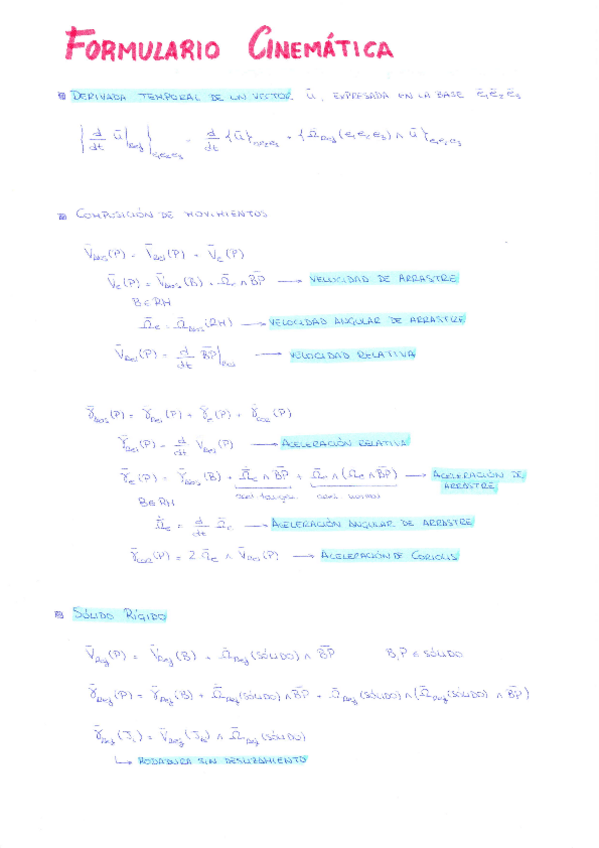 FORMULARIO CINEMÁTICA
DERIVADA TEMPORAL DE UN VECTOR ū, EXPRESADA EN LA BASE ē₁ē₂ē₃
{d/dt ū|Ref}e₁e₂e₃ = d/dt {ū}e₁e₂e₃ + {Ω̄Ref(e₁e₂e₃) ∧ ū}e₁e₂e₃
COMPOSICIÓN DE MOVIMIENTOS
V̄Abs(P) = V̄Rel(P) + V̄e(P)
V̄e(P) = V̄Abs(B) + Ω̄e ∧ B̄P̄ → VELOCIDAD DE ARRASTRE
B∈RM
Ω̄e = Ω̄Abs(RM) → VELOCIDAD ANGULAR DE ARRASTRE
V̄Rel(P) = d/dt B̄P̄|Rel → VELOCIDAD RELATIVA
γ̄Abs(P) = γ̄Rel(P) + γ̄e(P) + γ̄cor(P)
γ̄Rel(P) = d/dt V̄Rel(P) → ACELERACIÓN RELATIVA
γ̄e(P) = γ̄Abs(B) + Ω̄̇e ∧ B̄P̄ + Ω̄e ∧ (Ω̄e ∧ B̄P̄) → ACELERACIÓN DE
ARRASTRE
B∈RM
Ω̄̇e = d/dt Ω̄e → ACELERACIÓN ANGULAR DE ARRASTRE
γ̄cor(P) = 2 Ω̄e ∧ V̄Rel(P) → ACELERACIÓN DE CORIOLIS
SÓLIDO RÍGIDO
V̄Ref(P) = V̄Ref(B) + Ω̄Ref(SÓLIDO) ∧ B̄P̄ B,P ∈ SÓLIDO
γ̄Ref(P) = γ̄Ref(B) + Ω̄̇Ref(SÓLIDO) ∧ B̄P̄ + Ω̄Ref(SÓLIDO) ∧ (Ω̄Ref(SÓLIDO) ∧ B̄P̄)
∧ Ω̄Ref(SÓLIDO)
↳ RODADURA SIN DESLIZAMIENTO